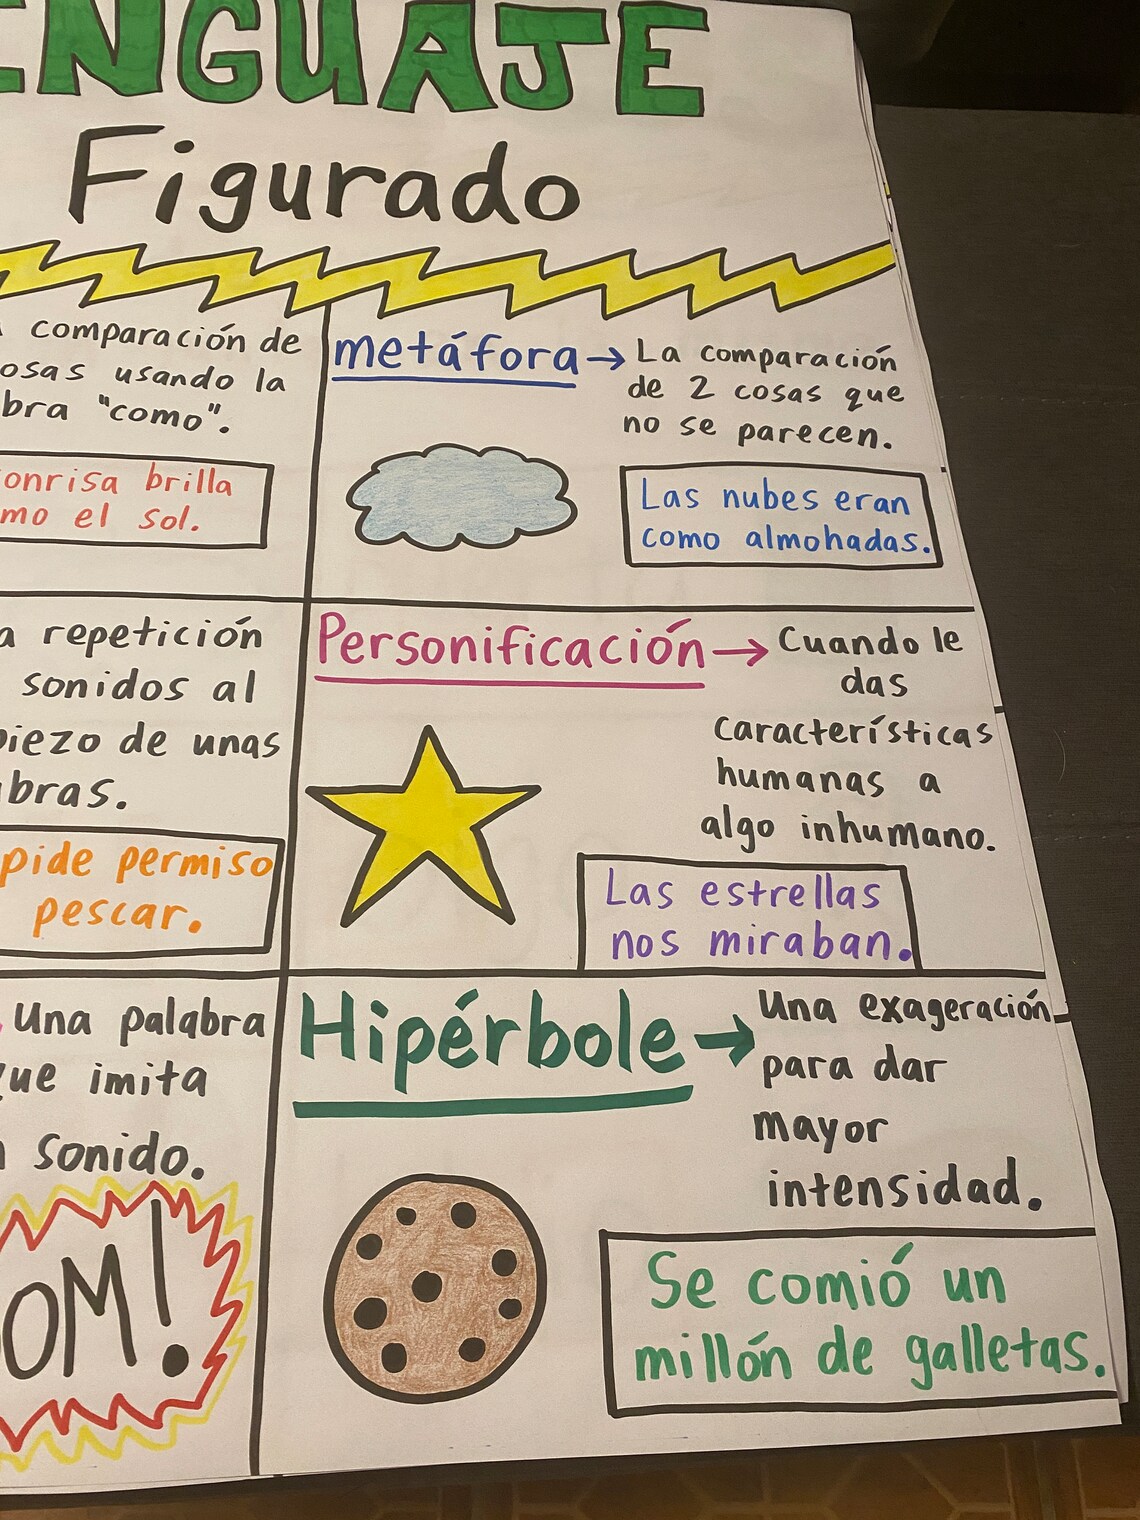 ENGUAJE
Figurado
comparación de
osas usando la
bra "como".
onrisa brilla
mo el sol.
metáfora → La comparación
de 2 cosas que
no se parecen.
Las nubes eran
como almohadas.
a repetición
sonidos al
piezo de unas
bras.
pide permiso
pescar.
Personificación → Cuando le
das
características
humanas a
algo inhumano.
Las estrellas
nos miraban.
Una palabra
ue imita
sonido.
OM!
Hipérbole → Una exageración
para dar
mayor
intensidad.
Se comió un
millón de galletas.